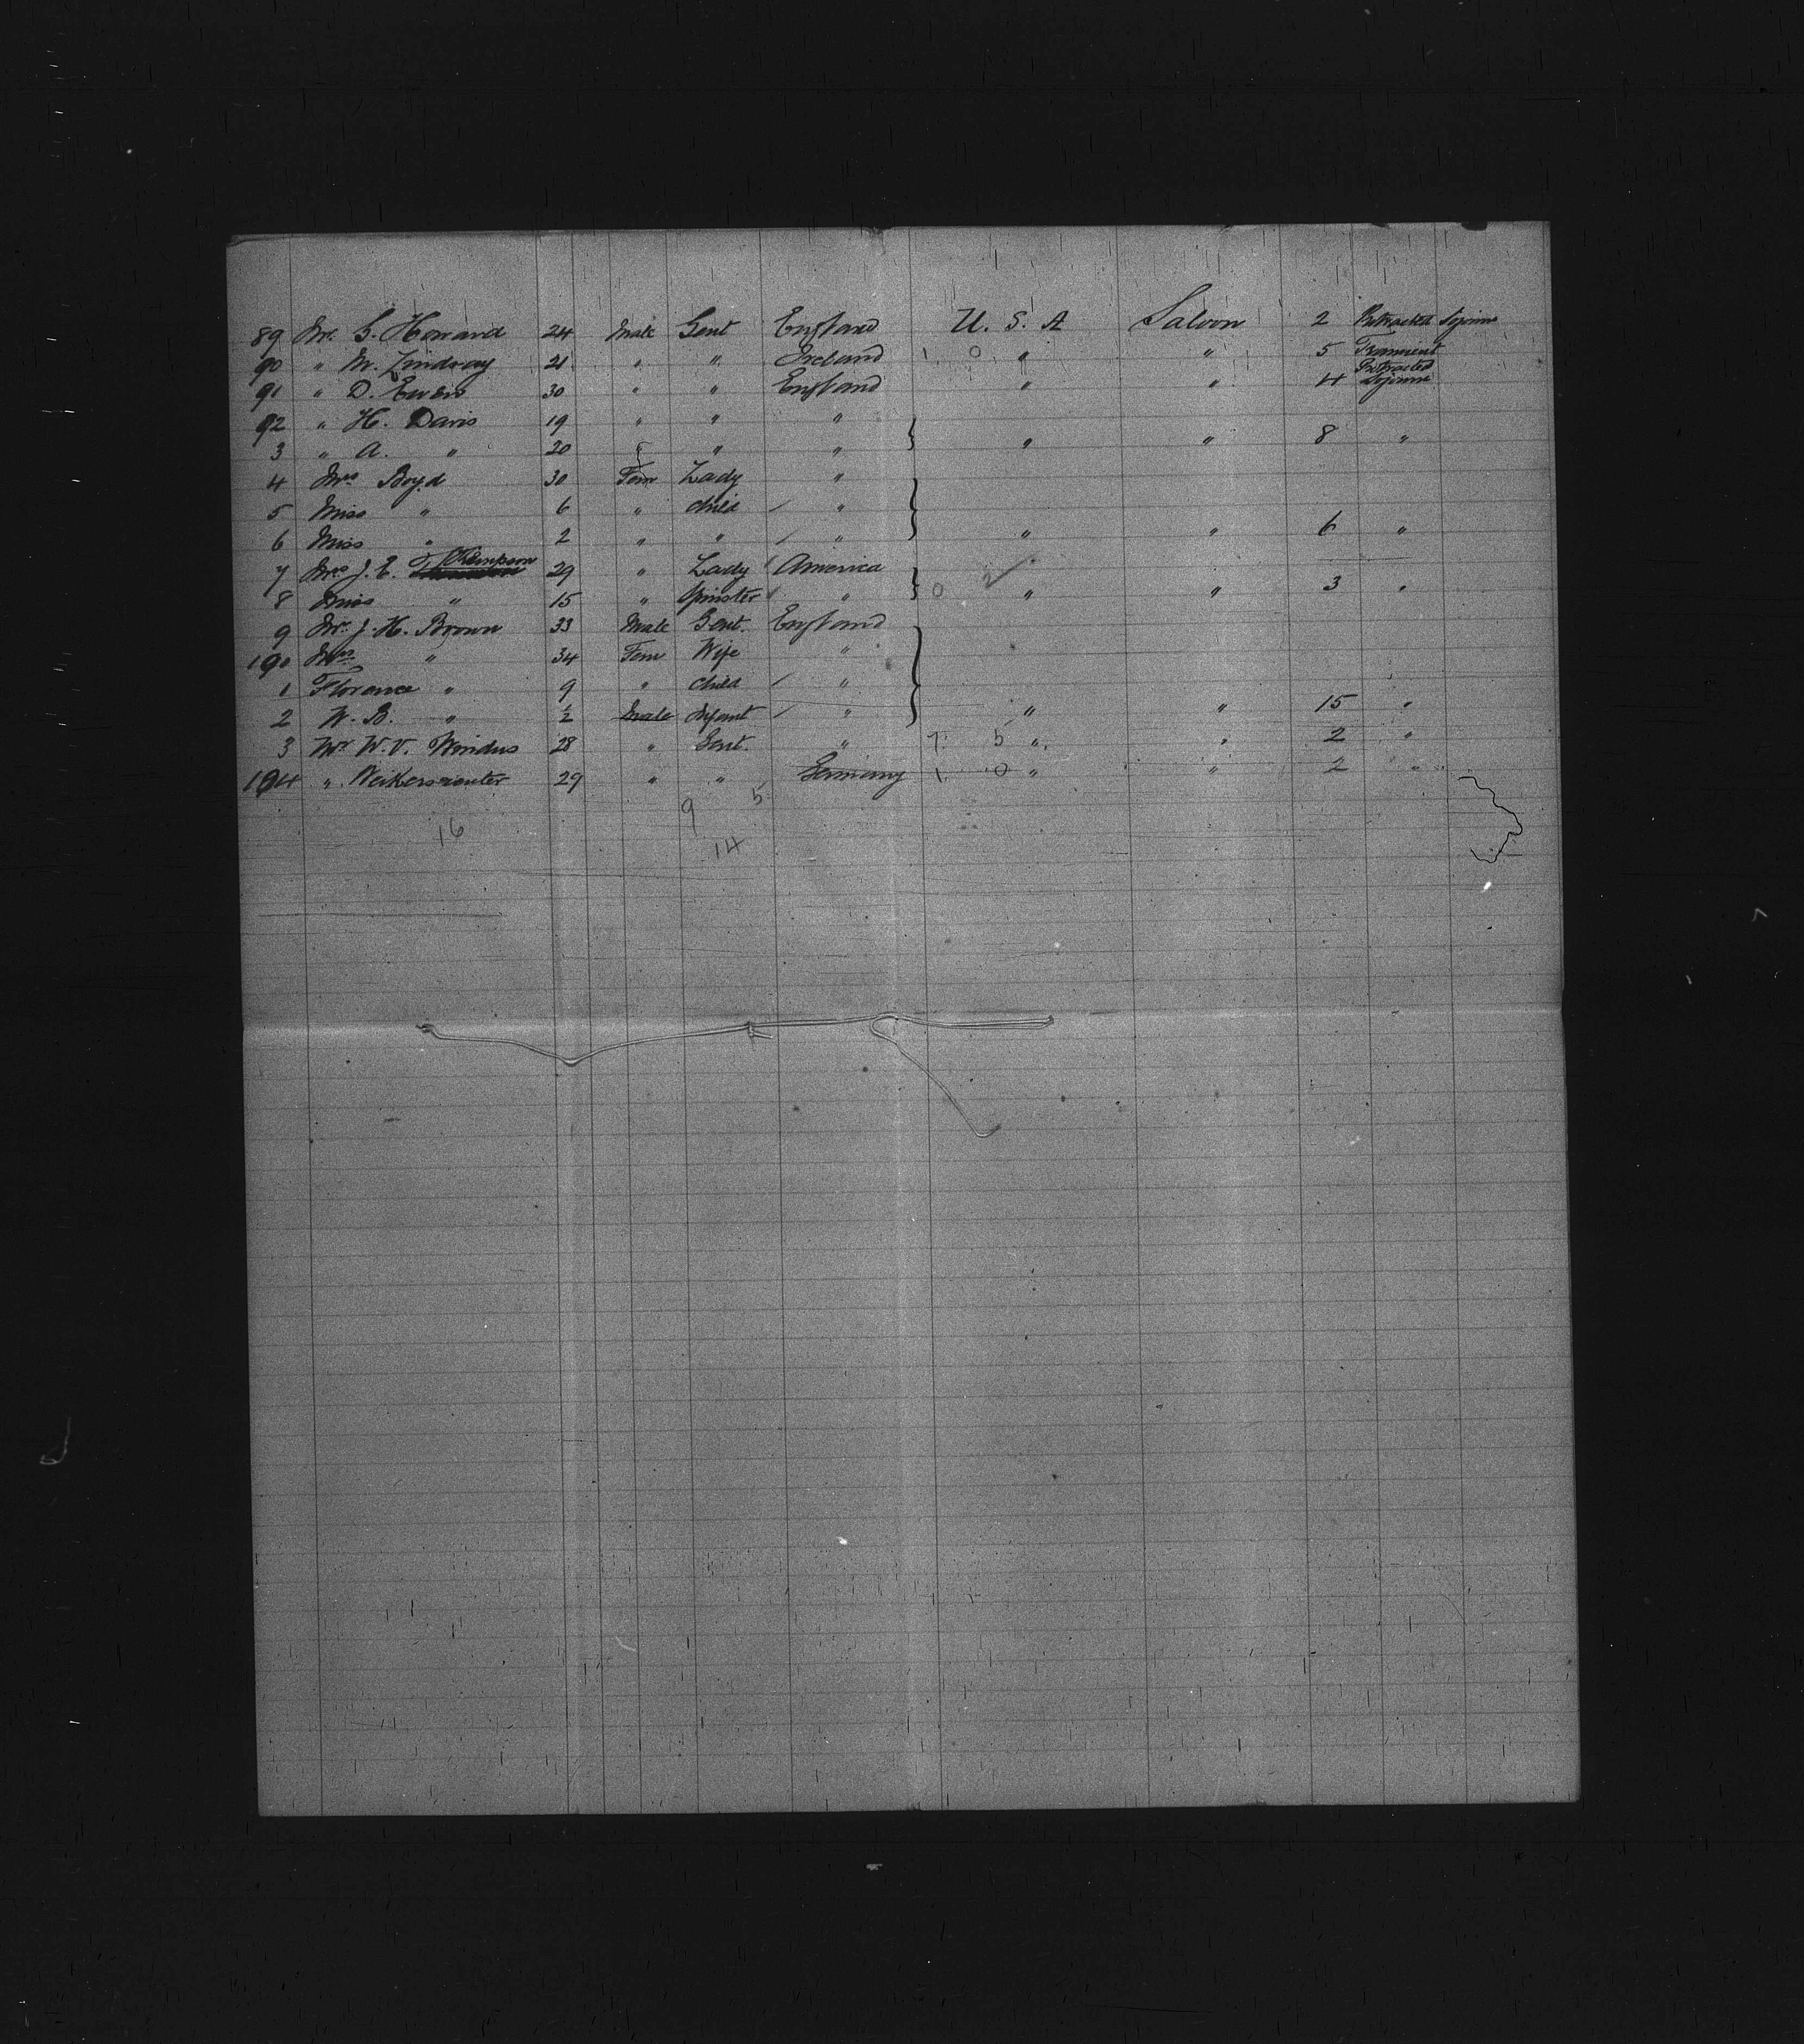 89 Mr. G. Howard 24 Male Gent England U. S. A Saloon 2 Protracted Sojourn
90 " M. Lindsay 21 " " Ireland 1. 0 " " 5 Transient
91 " D. Ewers 30 " " England " " 4 Protracted Sojourn
92 " H. Davis 19 " " "
3 " A. " 20 " " " " " 8 "
4 Mrs Boyd 30 Fem Lady "
5 Miss " 6 " child "
6 Miss " 2 " " " " " 6 "
7 Mrs J. E. Thompson 29 " Lady America
8 Miss " 15 " Spinster " 0 " " 3 "
9 Mr. J. H. Brown 33 Male Gent. England
100 Mrs " 34 Fem Wife "
1 Florence " 9 " child "
2 W. B. " ½ Male Infant " " " 15 "
3 Mr W. V. Windus 28 " Gent. " 7. 5 " " 2 "
104 " 29 " " Germany 1. 0 " " 2 "
9 5
16
14